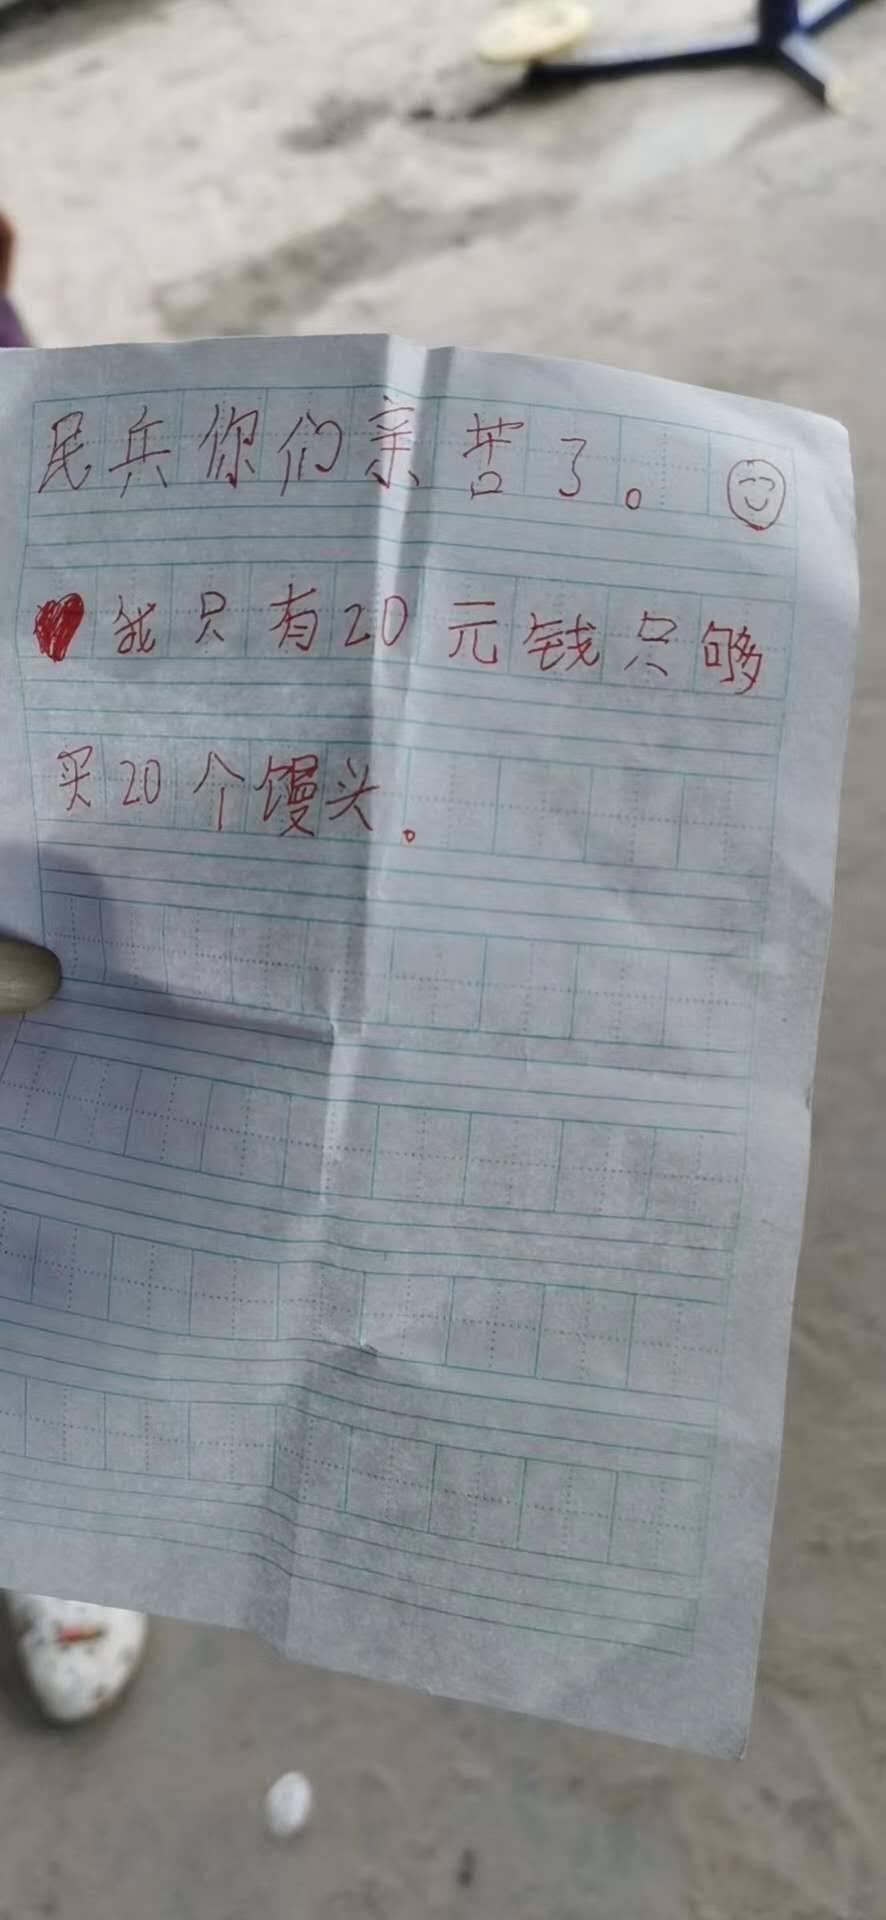 民兵你们亲苦了。
我只有20元钱只够
买20个馒头。